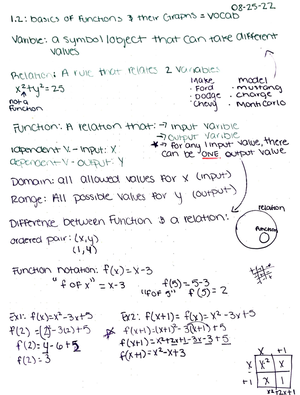 08-25-22
1.2: basics of Functions & their Graphs = VOCAB
Varible: a symbol/object that can take different
values
Relation: A rule that relates 2 variables
x²+y²=25
not a
function
Make
· Ford
· Dodge
· Chevy
model
· mustang
· charge
· Monte Carlo
Function: A relation that: → input varible
→ output varible
→ For any 1 input value, there
can be ONE output value
Idependent V. - Input: X
dependent V. - output: Y
Domain: all allowed values for x (input)
Range: All possible values for y (output)
Difference between Function & a relation:
relation
function
ordered pair: (x,y)
(1,4)
Function notation: f(x) = x-3
"f OF x" = x-3
f(5) = 5-3
"f OF 5" f(5) = 2
Ex1: f(x)=x²-3x+5
f(2) = (2)²-3(2)+5
f(2) = 4-6+5
f(2) = 3
Ex2: f(x+1) = f(x) = x²-3x+5
f(x+1) = (x+1)²-3(x+1)+5
f(x+1) = x²+2x+1-3x-3+5
f(x+1) = x²-x+3
x +1
x x² x
+1 x 1
x²+2x+1